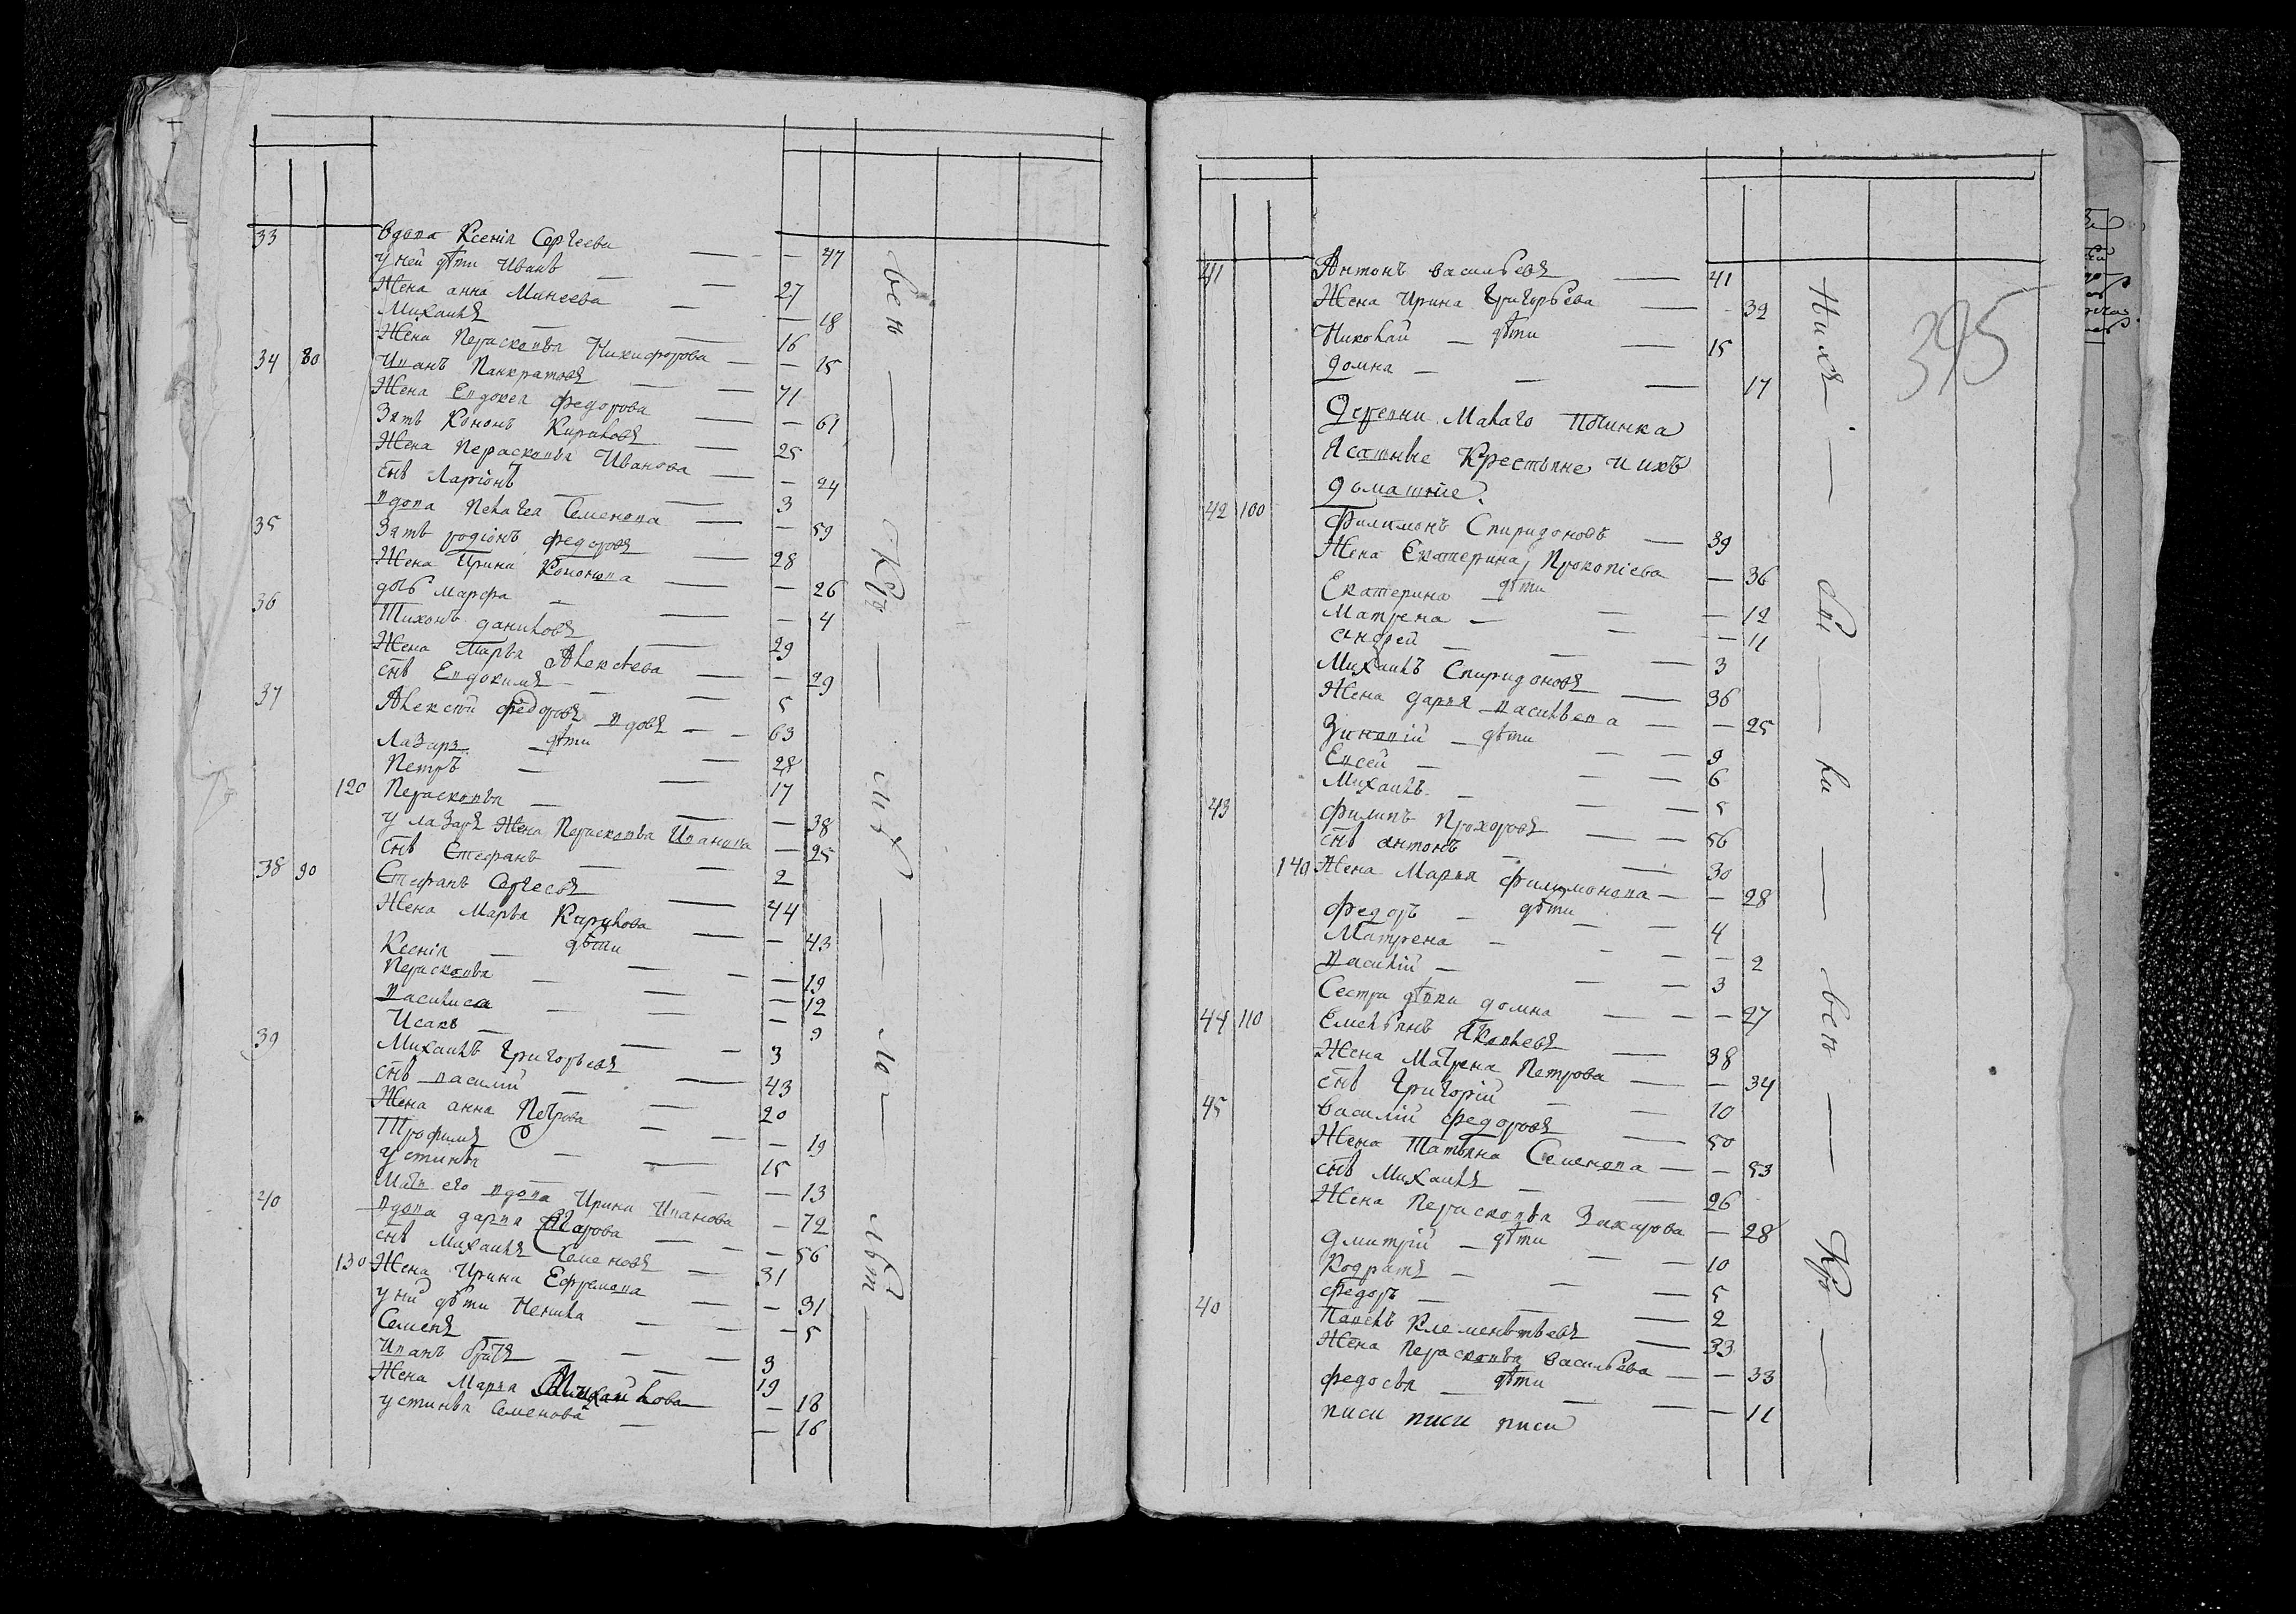 33 Вдова Ксенія Сергеева — 47
у ней дѣти Иванъ — 27
Жена анна Минеева — 18
Михаилъ — 16
Жена Перасковья Никифорова — 15
34 80 Иванъ Панкратовъ — 71
Жена Евдокея Федорова — 61
Зять Кононъ Кириловъ — 25
Жена Перасковья Иванова — 24
снъ Ларіонъ — 3
35 вдова Пелагея Семенова — 59
Зять родіонъ федоровъ — 28
Жена Ирина Кононова — 26
дочь марфа — 4
36 Тихонъ даниловъ — 29
Жена Марья Алексѣева — 29
снъ Евдокимъ — 5
37 Алексѣй федоровъ вдовъ — 63
дѣти
Лазарь — 28
Петръ — 17
120 Перасковья — 38
у лазаря Жена Перасковья Иванова — 25
снъ Стефанъ — 2
38 90 Стефанъ Сергеевъ — 44
Жена Марья Кирилова — 43
дѣти
Ксенія — 19
Перасковья — 12
василиса — 9
Исакъ — 3
39 Михаилъ Григорьевъ — 43
снъ василий — 20
Жена анна Петрова — 19
Трофимъ — 15
устинья — 13
Мать его вдова Ирина Иванова — 72
40 вдова дарья — 56
снъ Михаилъ Семеновъ — 31
130 Жена Ирина Ефремова — 31
у них дѣти Ненила — 5
Семенъ — 3
Иванъ братъ — 19
Жена Марья Михайлова — 18
устинья Семенова — 16
вен — Кр — их — ло — лѣт
395
41 Антонъ васильевъ — 41
Жена Ирина Григорьева — 39
дѣти
Николай — 15
домна — 17
Деревни Малаго Починка
Ясашные Крестьяне и ихъ
домашніе.
42 100 Филимонъ Спиридоновъ — 39
Жена Екатерина Прокопіева — 36
дѣти
Екатерина — 12
Матрена — 11
андрей — 3
Михаилъ Спиридоновъ — 36
Жена дарья васильева — 25
Зиновій дѣти — 9
Евсей — 6
Михаилъ — 5
43 Филипъ Прохоровъ — 56
снъ антонъ — 30
140 Жена Марья филимонова — 28
федоръ дѣти — 4
Матрена — 2
василій — 3
Сестра дѣвка домна — 27
44 110 Емельянъ Яковлевъ — 38
Жена Матрена Петрова — 34
снъ Григорій — 10
45 василій федоровъ — 50
Жена Татьяна Семенова — 53
снъ Михаилъ — 26
Жена Перасковья Захарова — 28
дмитрій дѣти — 10
Кодратъ — 5
федоръ — 2
40 Павелъ Клементьевъ — 33
Жена Перасковья васильева — 33
федосья дѣти — 11
писи писи писи